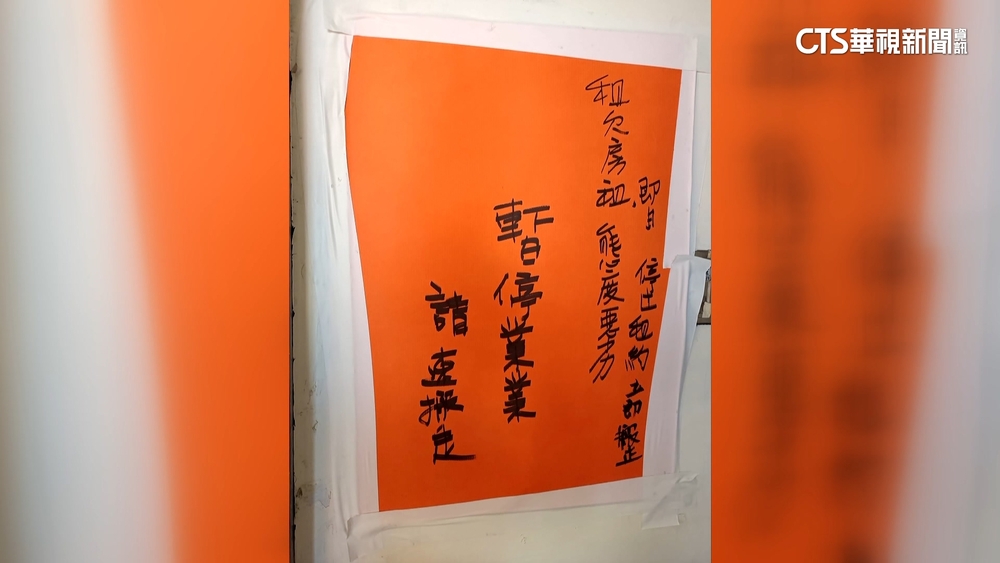 CTS華視新聞資訊
停止租約
租欠房租 態度惡劣
暫停業業
請 搬走